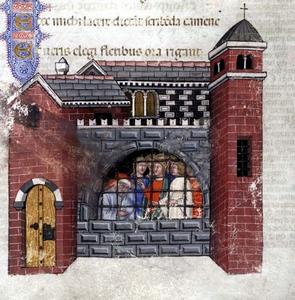 ce michi lacere dictāt scribēda camene
ueris elegi fletibus ora rigant